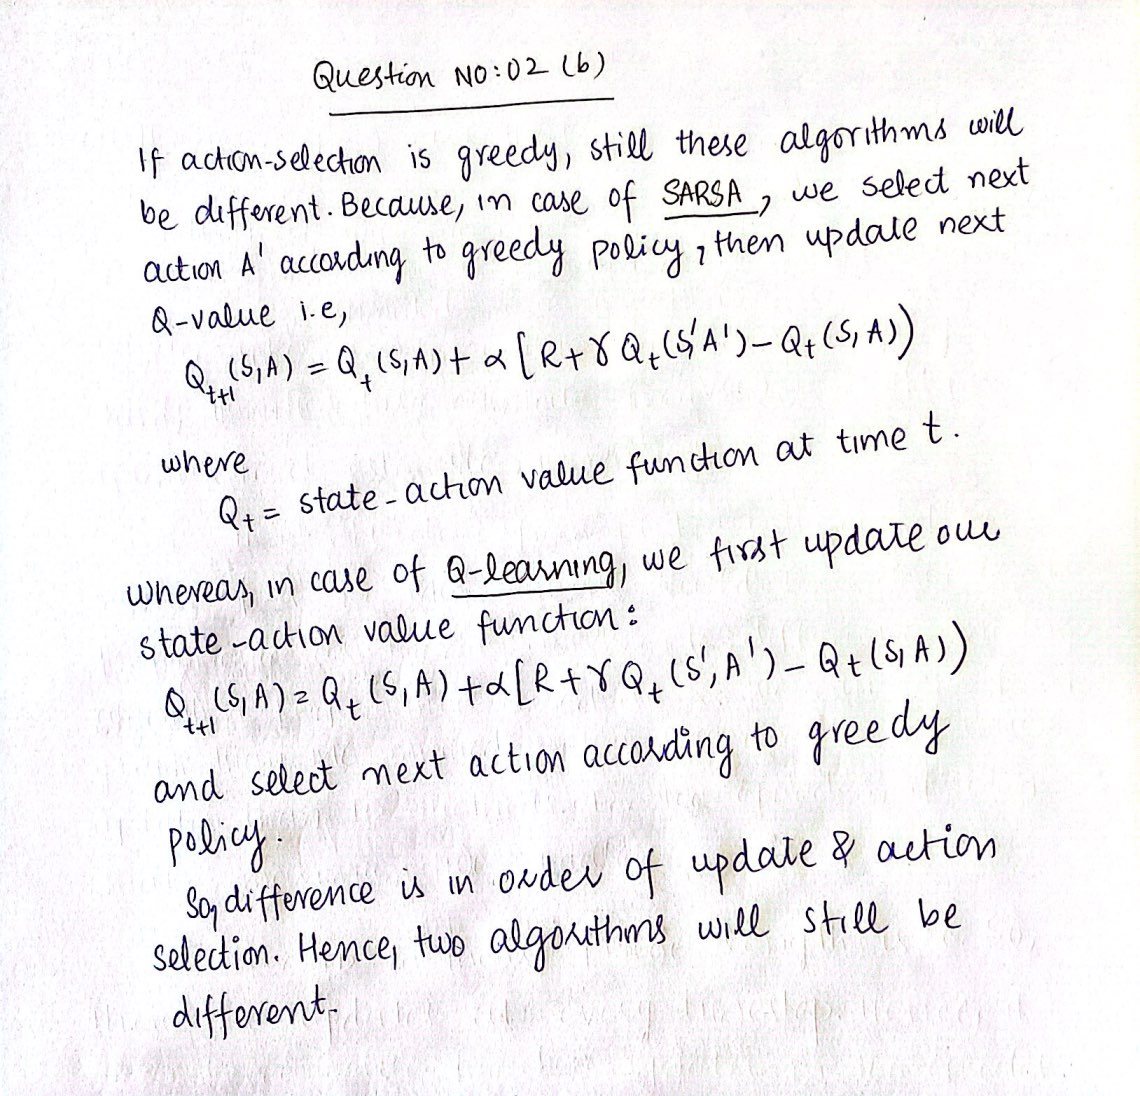 Question NO:02 (b)
If action-selection is greedy, still these algorithms will
be different. Because, in case of SARSA, we select next
action A' according to greedy policy, then update next
Q-value i.e,
Q_{t+1}(S,A) = Q_t(S,A) + α[R+γQ_t(S'A') - Q_t(S,A))
where
Q_t = state-action value function at time t.
whereas, in case of Q-learning, we first update our
state-action value function:
Q_{t+1}(S,A) = Q_t(S,A) + α[R+γQ_t(S',A') - Q_t(S,A))
and select next action according to greedy
policy.
So, difference is in order of update & action
selection. Hence, two algorithms will still be
different.